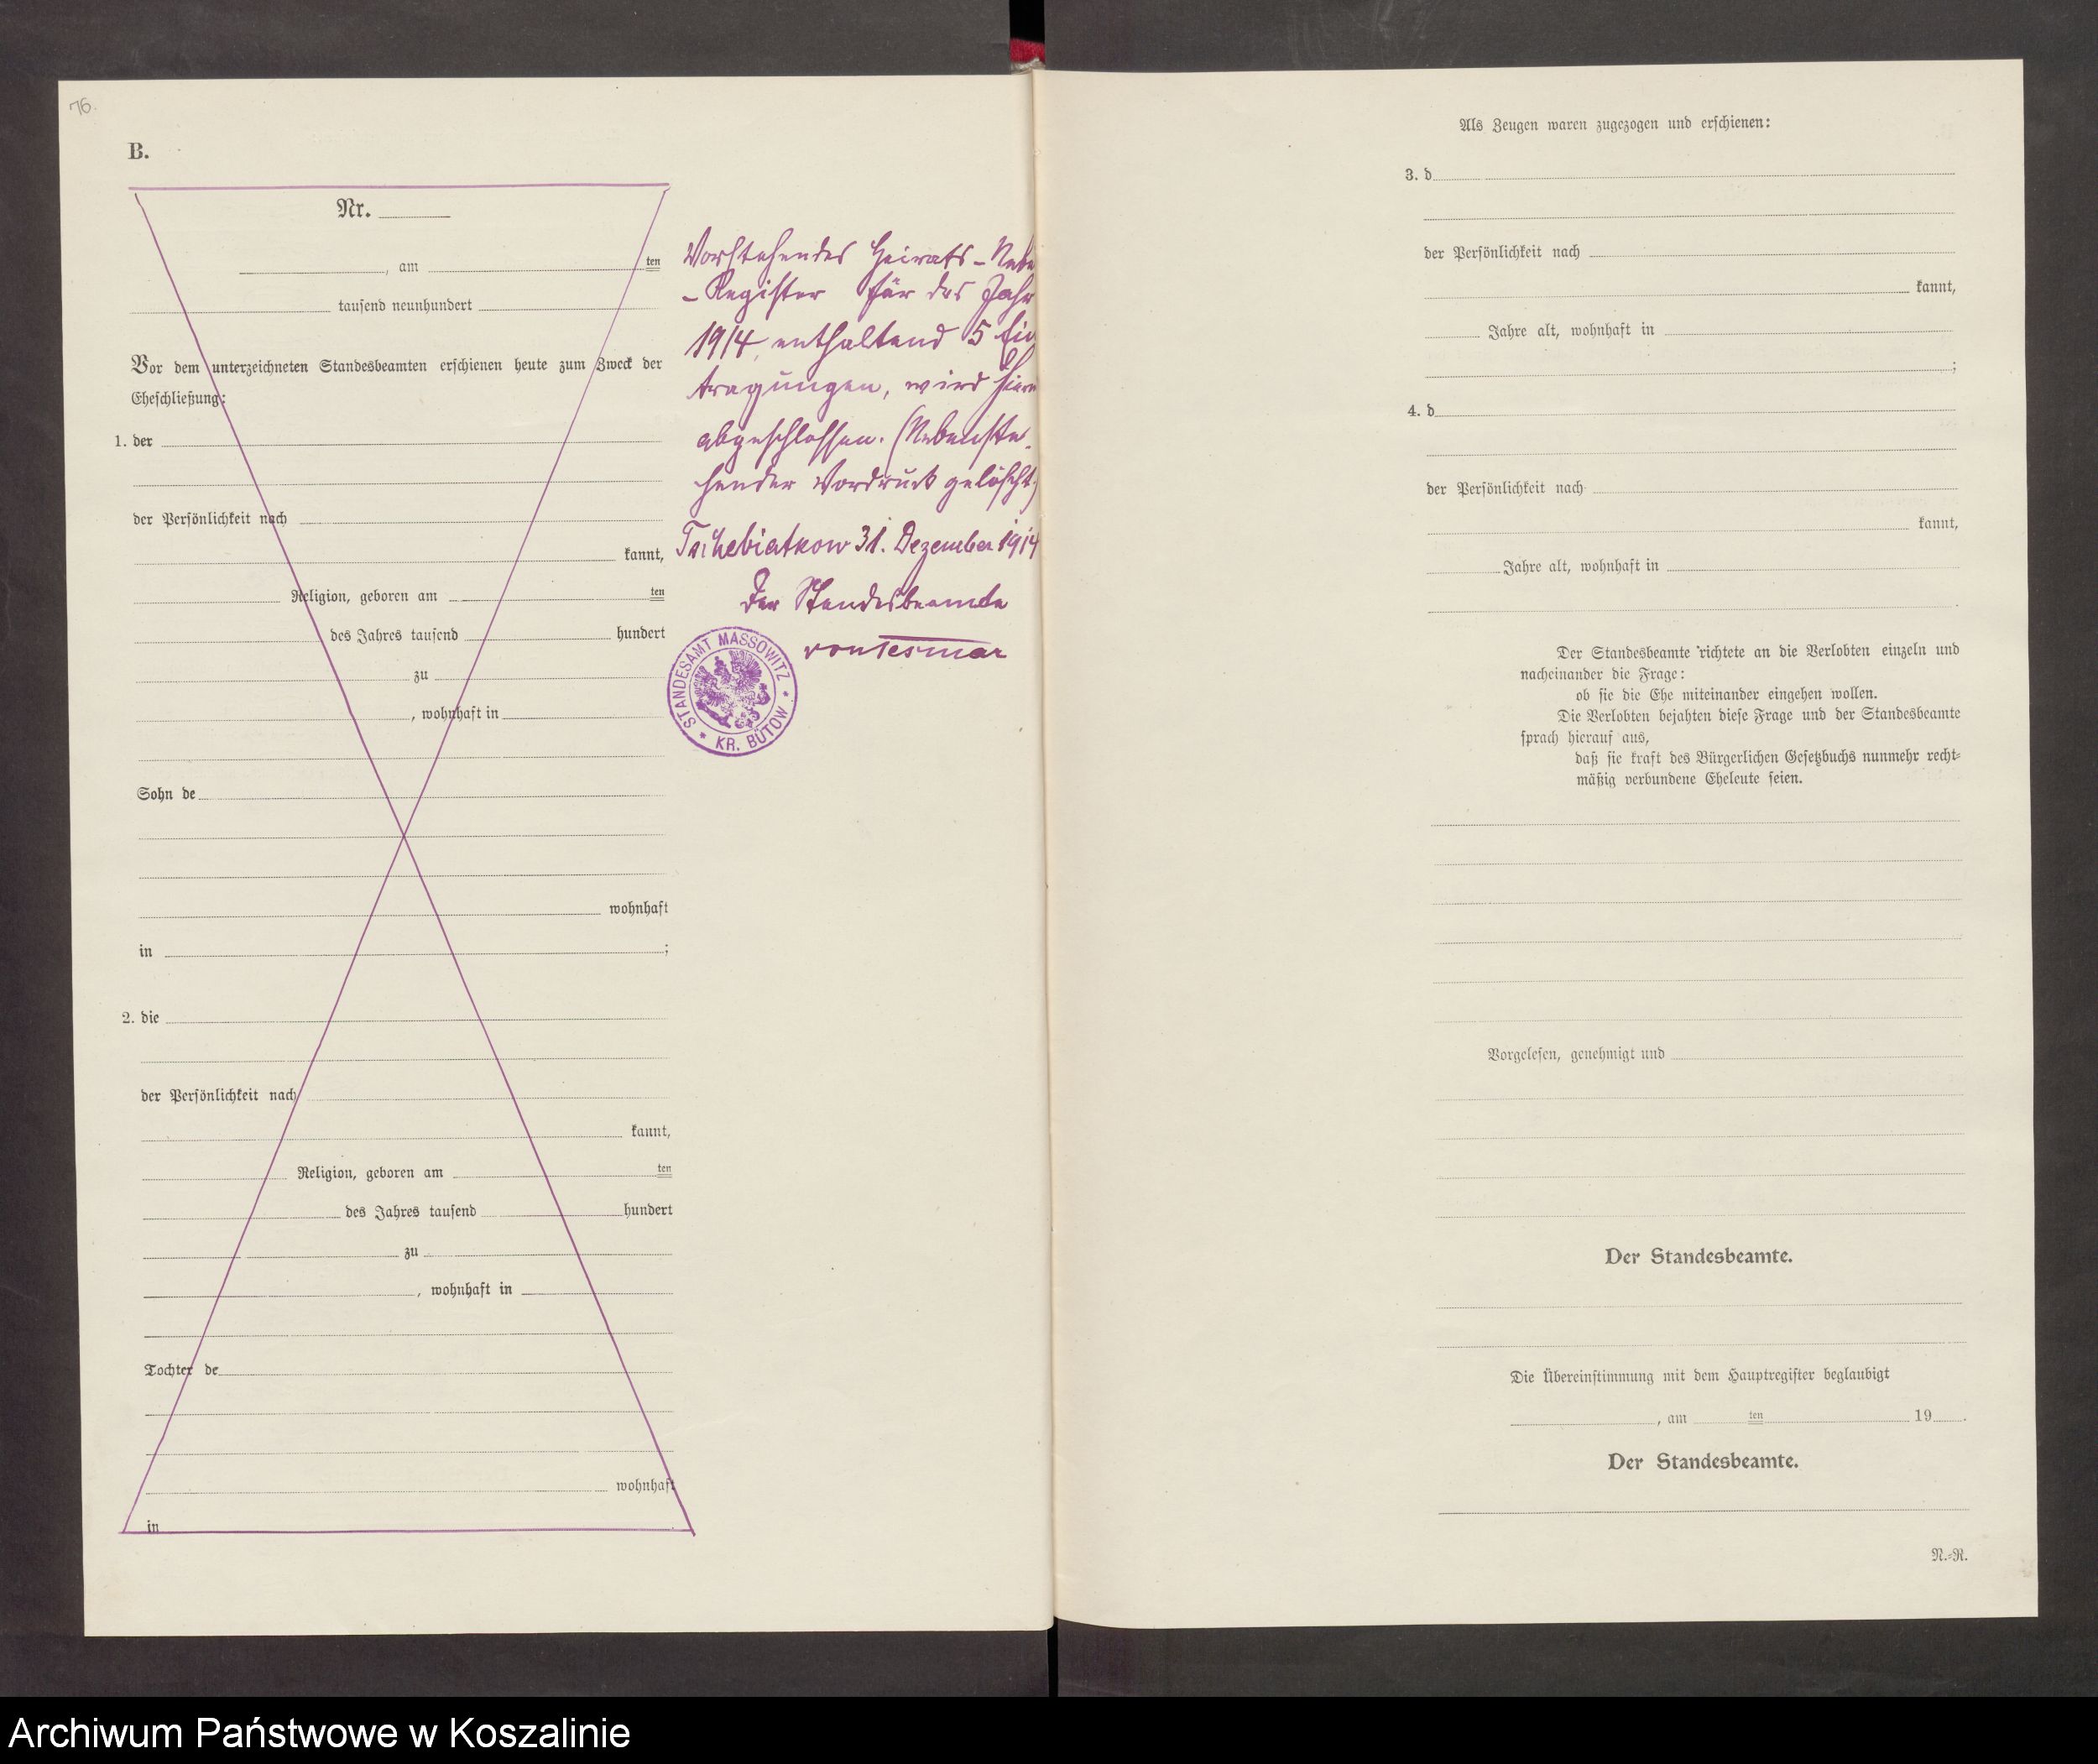 76.
B.
Nr.
, am ten
tausend neunhundert
Vor dem unterzeichneten Standesbeamten erschienen heute zum Zweck der
Eheschließung:
1. der
der Persönlichkeit nach
kannt,
Religion, geboren am ten
des Jahres tausend hundert
zu
, wohnhaft in
Sohn de
wohnhaft
in ;
2. die
der Persönlichkeit nach
kannt,
Religion, geboren am ten
des Jahres tausend hundert
zu
, wohnhaft in
Tochter de
wohnhaft
in
Vorstehendes Heirats-Nebe
-Register für das Jahr
1914, enthaltend 5 Ein
tragungen, wird hierm
abgeschlossen. (Nebenste-
hender Vordruck gelöscht)
Tschebiatkow 31. Dezember 1914
Der Standesbeamte
von Tesmar
STANDESAMT MASSOWITZ
* KR. BÜTOW *
Als Zeugen waren zugezogen und erschienen:
3. d
der Persönlichkeit nach
kannt,
Jahre alt, wohnhaft in
;
4. d
der Persönlichkeit nach
kannt,
Jahre alt, wohnhaft in
Der Standesbeamte richtete an die Verlobten einzeln und
nacheinander die Frage:
ob sie die Ehe miteinander eingehen wollen.
Die Verlobten bejahten diese Frage und der Standesbeamte
sprach hierauf aus,
daß sie kraft des Bürgerlichen Gesetzbuchs nunmehr recht-
mäßig verbundene Eheleute seien.
Vorgelesen, genehmigt und
Der Standesbeamte.
Die Übereinstimmung mit dem Hauptregister beglaubigt
, am ten 19 .
Der Standesbeamte.
N.-R.
Archiwum Państwowe w Koszalinie